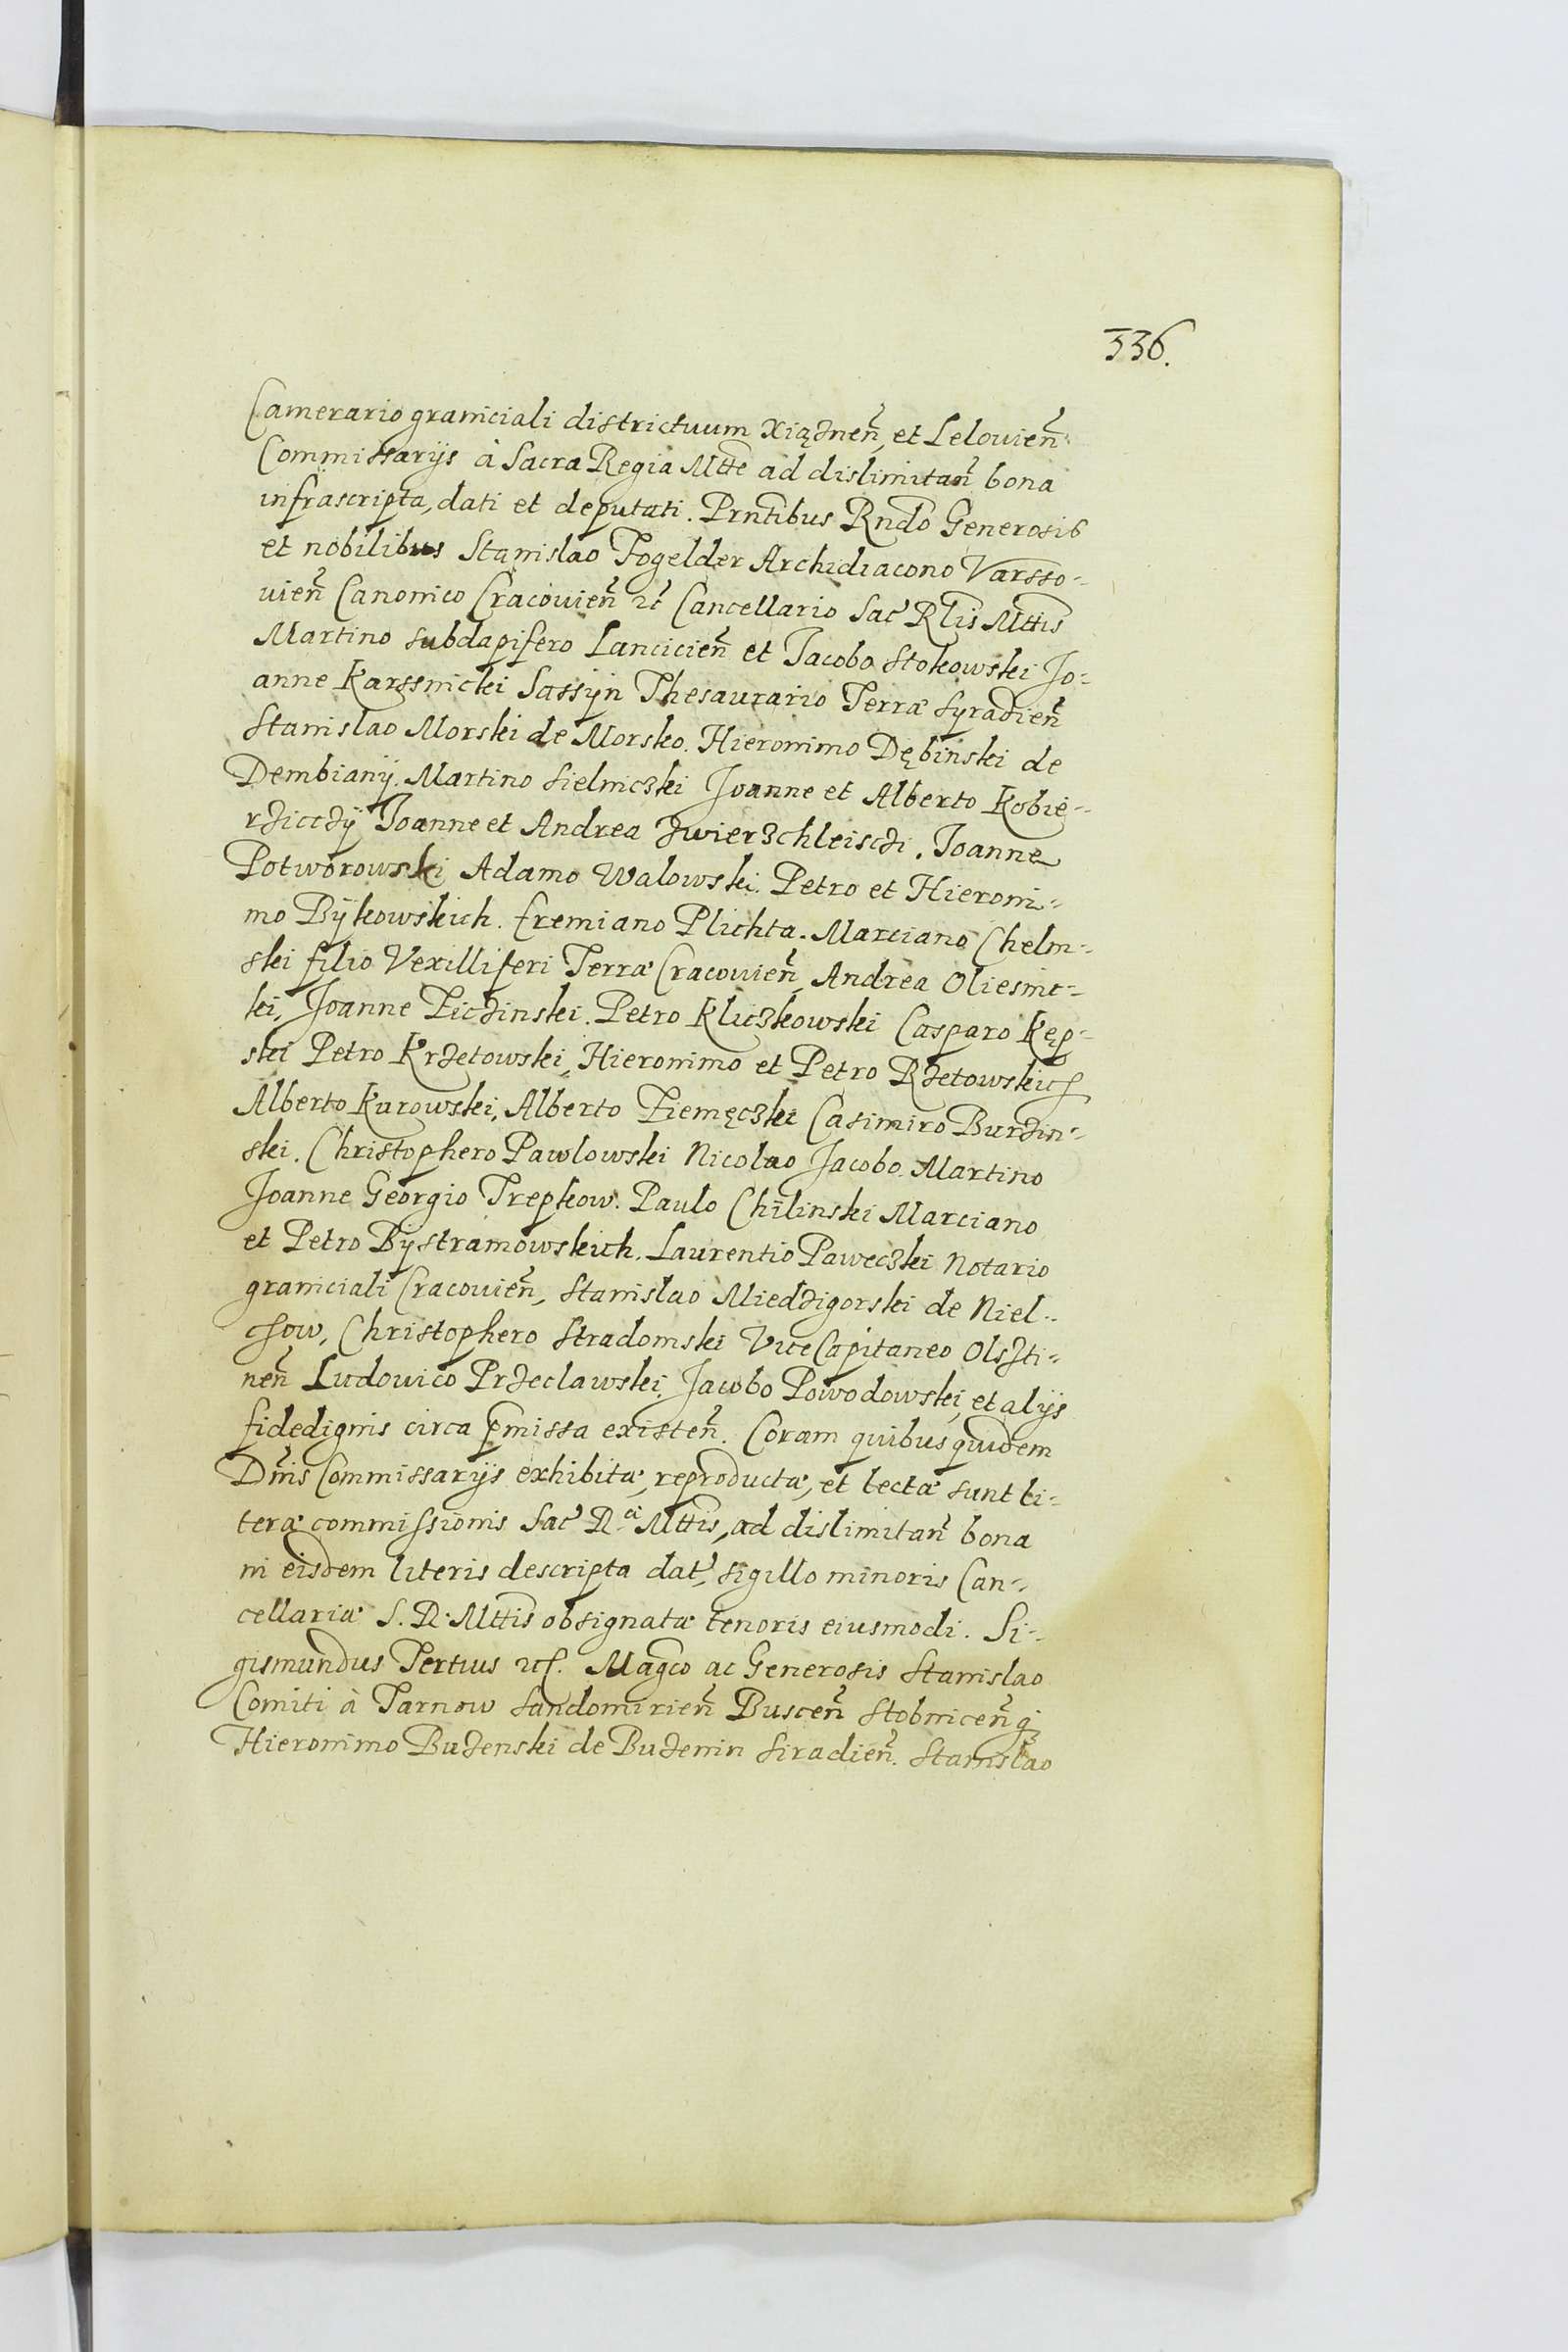 336.
Camerario graniciali districtuum Xiąznen̄, et Lelouien̄
Commissarijs à Sacra Regia Mtte ad dislimitan̄ bona
infrascripta, dati et deputati. Prntibus Rndo Generosis
et nobilibus Stanislao Fogelder Archidiacono Varsso-
uien̄ Canonico Cracouien̄ etc̄ Cancellario Sac̄ Rlis Mttis
Martino subdapifero Lancicien̄ et Jacobo Stokowski Jo-
anne Karssnicki Sassyn Thesaurario Terræ Syradien̄
Stanislao Morski de Morsko. Hieronimo Dębinski de
Dembianÿ. Martino Sielniczki Joanne et Alberto Kobie-
rziczzÿ Joanne et Andrea Zwierzchleisczi. Joanne
Potworowski Adamo Walowski. Petro et Hieroni-
mo Bÿkowskich. Eremiano Plichta. Marciano Chelm-
ski filio Vexilliferi Terræ Cracouien̄, Andrea Oliesnic-
ki, Joanne Piczinski. Petro Kliczkowski Casparo Kęp-
ski Petro Krzetowski, Hieronimo et Petro Rzetowskich
Alberto Kurowski, Alberto Piemęczki Casimiro Burzin-
ski. Christophero Pawlowski Nicolao Jacobo Martino
Joanne Georgio Trepkow. Paulo Chilinski Marciano
et Petro Bÿstramowskich. Laurentio Paweczki Notario
graniciali Cracouien̄, Stanislao Miedzigorski de Niel-
chow, Christophero Stradomski ViceCapitaneo Olszti-
nen̄ Ludouico Przeclawski, Jacobo Powodowski, et alijs
fidedignis circa p̄missa existen̄. Coram quibus quidem
Dnis Commissarijs exhibitæ, reproductæ, et lectæ sunt li-
teræ commissionis Sac̄ R.ei Mttis, ad dislimitan̄ bona
in eisdem literis descripta dat̄, sigillo minoris Can-
cellariæ S. R. Mttis obsignatæ tenoris eiusmodi. Si-
gismundus Tertius etc. Magco ac Generosis Stanislao
Comiti à Tarnow Sandomirien̄ Buscen̄ Stobnicen̄q;
Hieronimo Buzenski de Buzenin Siradien̄. Stanislao